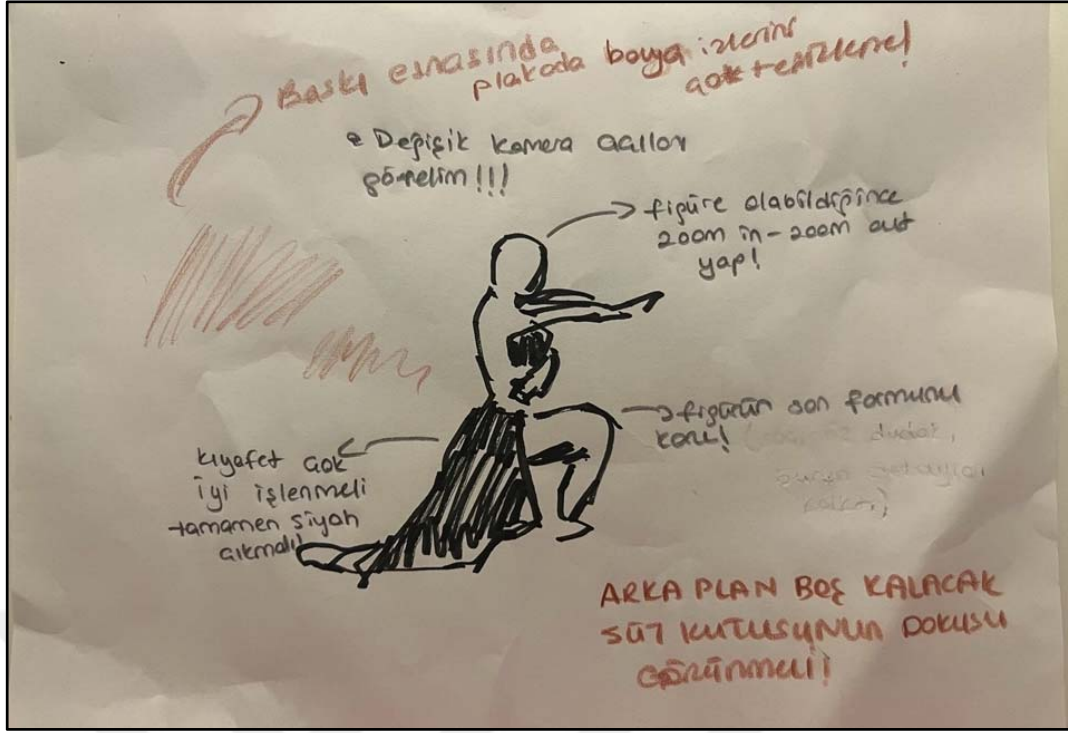 Baskı esnasında
plakada boya izlerini
çok temizleme!
Değişik kamera açıları
görelim!!!
figüre olabildiğince
zoom in - zoom out
yap!
figürün son formunu
koru!
dudak,
kıyafet çok
iyi işlenmeli
tamamen siyah
çıkmalı!
ARKA PLAN BOŞ KALACAK
SÜT KUTUSUNUN DOKUSU
GÖRÜNMELİ!